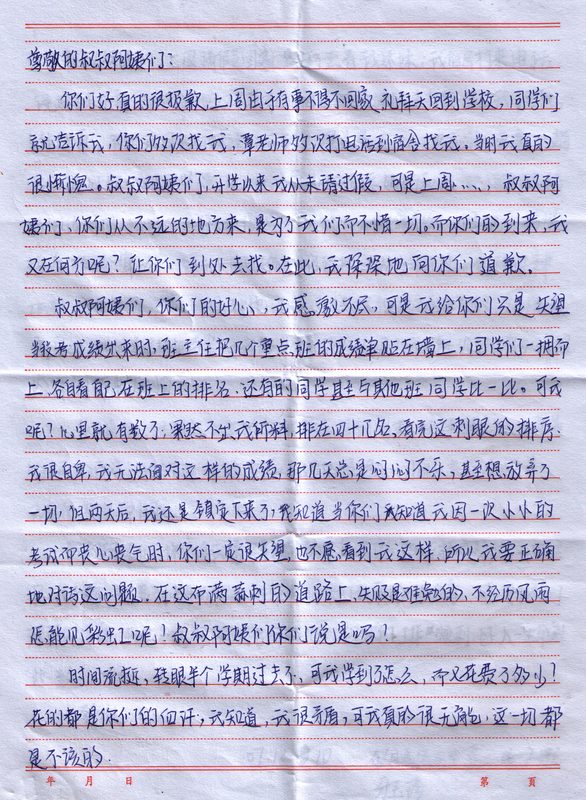 尊敬的叔叔阿姨们:
你们好真的很报歉,上周由于有事不得不回家,礼拜天回到学校,同学们
就告诉我,你们多次找我,覃老师多次打电话到宿舍找我,当时我真的
很惭愧。叔叔阿姨们,开学以来我从未请过假,可是上周、、、、叔叔阿
姨们,你们从不远的地方来,是为了我们而不惜一切。而你们的到来,我
又在何方呢?让你们到处去找。在此,我深深地向你们道歉。
叔叔阿姨们,你们的好心,我感激不尽,可是我给你们只是失望
当段考成绩出来时,班主任把几个重点班的成绩单贴在墙上,同学们一拥而
上,各自看自己在班上的排名,还有的同学甚至与其他班同学比一比。可我
呢?心里就有数了,果然不出我所料,排在四十几名,看完这刺眼的排序,
我很自卑,我无法面对这样的成绩,那几天总是闷闷不乐,甚至想放弃了
一切,但两天后,我还是镇定下来了,我知道当你们知道我因一次小小的
考试而丧儿丧气时,你们一定很失望,也不愿看到我这样,所以我要正确
地对待这问题。在这布满荆刺的道路上,失败是难勉的,不经历风雨
怎能见彩虹呢!叔叔阿姨们你们说是吗?
时间流挺,转眼半个学期过去了,可我学到了怎么,而又花费了多少?
花的都是你们的血汗,我知道,我很矛盾,可我真的很无能,这一切都
是不该的.
年 月 日 第 頁